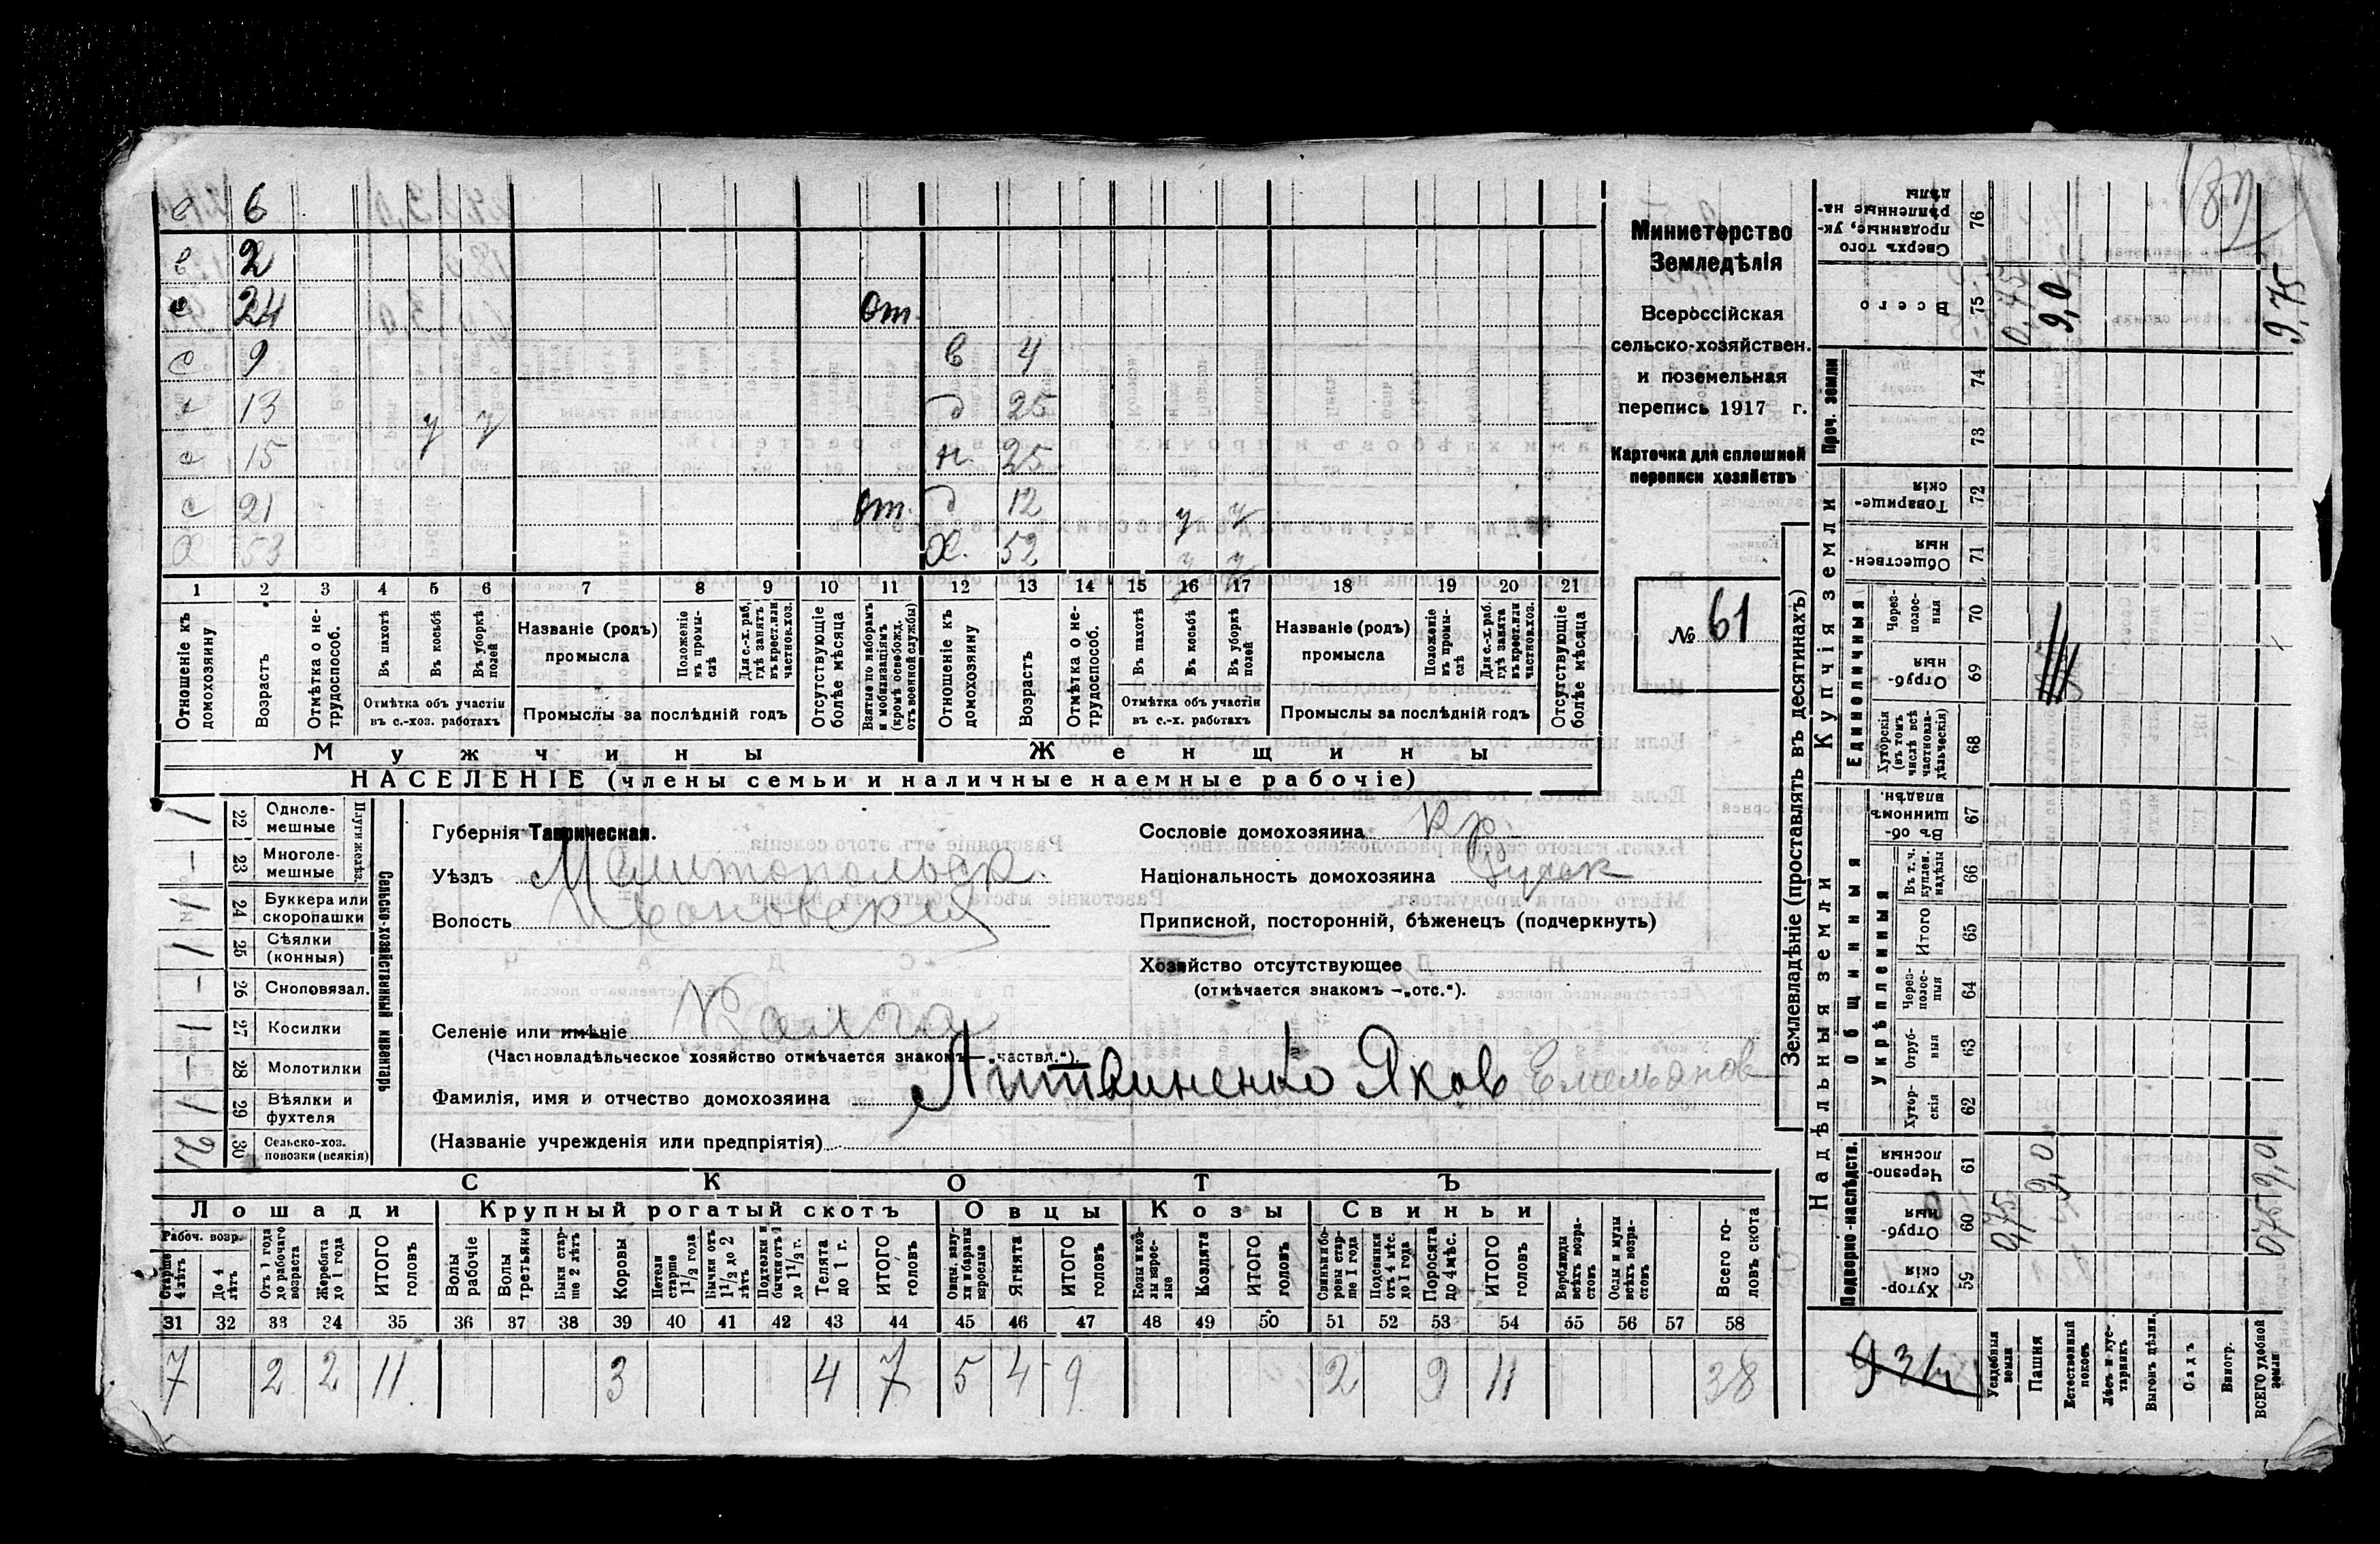 с 6
в 2
с 24 от
с 9 в 4
с 13 д 25
с 15 у у н 25
с 21 от. д 12 у у
х 53 х. 52 у у
1 2 3 4 5 6 7 8 9 10 11 12 13 14 15 16 17 18 19 20 21
Отношеніе къ домохозяину
Возрастъ
Отмѣтка о не-трудоспособ.
Въ пахотѣ
Въ косьбѣ
Въ уборкѣ полей
Отмѣтка объ участіи въ с.-хоз. работахъ
Названіе (родъ) промысла
Положеніе въ промы-слѣ
Для с.-х. раб. гдѣ занятъ въ крест. или частнов. хоз.
Промыслы за послѣдній годъ
Отсутствующіе болѣе мѣсяца
Взятые по наборамъ и мобилизаціямъ (кромѣ освобожд. отъ военной службы)
Отношеніе къ домохозяину
Возрастъ
Отмѣтка о не-трудоспособ.
Въ пахотѣ
Въ косьбѣ
Въ уборкѣ полей
Отмѣтка объ участіи въ с.-х. работахъ
Названіе (родъ) промысла
Положеніе въ промы-слѣ
Для с.-х. раб. гдѣ занята въ крест. или частнов. хоз.
Промыслы за послѣдній годъ
Отсутствующіе болѣе мѣсяца
Мужчины Женщины
НАСЕЛЕНІЕ (члены семьи и наличные наемные рабочіе)
Министерство
Земледѣлія
Всероссійская
сельско-хозяйствен.
и поземельная
перепись 1917 г.
Карточка для сплошной
переписи хозяйствъ
№ 61
Сельско-хозяйственный инвентарь
Плуги желѣз.
22 Одноле-мешные 1
23 Многоле-мешные –
24 Буккера или скоропашки 1
25 Сѣялки (конныя) 1
26 Сноповязал. –
27 Косилки 1
28 Молотилки –
29 Вѣялки и фухтеля 1
30 Сельско-хоз. повозки (всякія) 2
Губернія Таврическая.
Уѣздъ Мелитопольск.
Волость Ивановская
Селеніе или имѣніе
(Частновладѣльческое хозяйство отмѣчается знакомъ – „частвл.“).
Фамилія, имя и отчество домохозяина Литвиненко Яков Емельянов
(Названіе учрежденія или предпріятія)
Сословіе домохозяина кр.
Національность домохозяина
Приписной, посторонній, бѣженецъ (подчеркнуть)
Хозяйство отсутствующее
(отмѣчается знакомъ –„отс.“).
СКОТЪ
Лошади Крупный рогатый скотъ Овцы Козы Свиньи
Рабоч. возр.
Старше 4 лѣтъ
До 4 лѣтъ
Отъ 1 года до рабочаго возраста
Жеребята до 1 года
ИТОГО головъ
Волы рабочіе
Волы третьяки
Быки стар-ше 2 лѣтъ
Коровы
Нетели старше 1 1/2 года
Бычки отъ 1 1/2 до 2 лѣтъ
Подтелки и бычки отъ 1 до 1 1/2 г.
Телята до 1 г.
ИТОГО головъ
Овцы, валу-хи и бараны взрослые
Ягнята
ИТОГО головъ
Козы и коз-лы взрос-лые
Козлята
ИТОГО головъ
Свиньи и бо-ровы стар-ше 1 года
Подсвинки отъ 4 мѣс. до 1 года
Поросята до 4 мѣс.
ИТОГО головъ
Верблюды всѣхъ возра-стовъ
Ослы и мулы всѣхъ возра-стовъ
Всего го-ловъ скота
31 32 33 34 35 36 37 38 39 40 41 42 43 44 45 46 47 48 49 50 51 52 53 54 55 56 57 58
7 2 2 11 3 4 7 5 4 9 2 9 11 38
Землевладѣніе (проставлять въ десятинахъ)
Надѣльныя земли Купчія земли Проч. земли
Подворно-наслѣдств.
Общинныя
Укрѣпленныя
Единоличныя
Хутор-скія 59
Отруб-ныя 60
Черезпо-лосныя 61
Хутор-скія 62
Отруб-ныя 63
Через-полос-ныя 64
Итого 65
Въ т. ч. куплен. надѣлы 66
Въ об-щинномъ владѣн. 67
Хуторскія (въ томъ числѣ всѣ частновла-дѣльческія) 68
Отруб-ныя 69
Через-полос-ныя 70
Обществен-ныя 71
Товарище-скія 72
73
74
Всего 75
Сверхъ того проданные, ук-рѣпленные на-дѣлы 76
Усадебныя земли 0,75 0,75
Пашня 9,0 9,0
Естественный покосъ
Лѣсъ и кус-тарникъ
Выгонъ цѣлин.
Садъ
Виногр.
ВСЕГО удобной земли 0,75 9,0 9,75